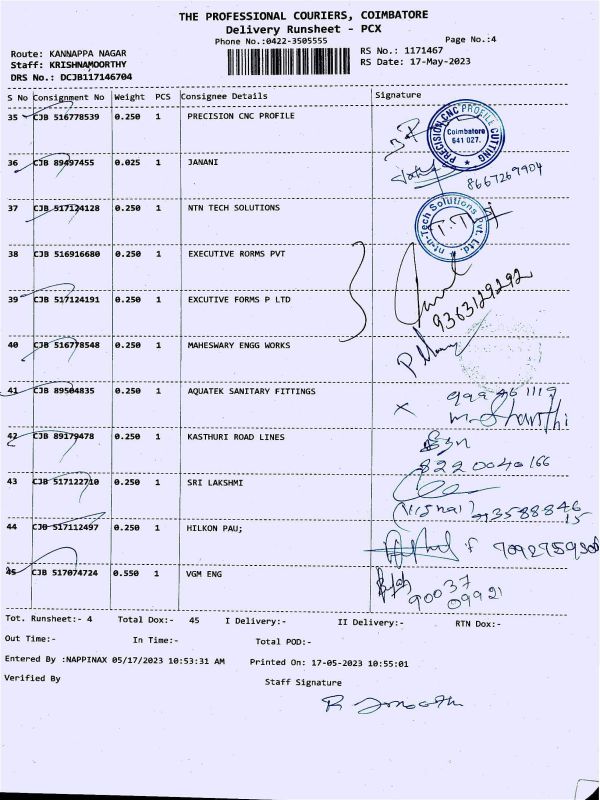 THE PROFESSIONAL COURIERS, COIMBATORE
Delivery Runsheet - PCX
Phone No.:0422-3505555 Page No.:4
Route: KANNAPPA NAGAR RS No.: 1171467
Staff: KRISHNAMOORTHY RS Date: 17-May-2023
DRS No.: DCJB117146704
S No Consignment No Weight PCS Consignee Details Signature
35 CJB 516778539 0.250 1 PRECISION CNC PROFILE
PRECISION CNC PROFILE CUTTING
Coimbatore
641 027.
36 CJB 89497455 0.025 1 JANANI
8667269904
37 CJB 517124128 0.250 1 NTN TECH SOLUTIONS
n-Tech Solutions Pvt. Ltd
38 CJB 516916680 0.250 1 EXECUTIVE RORMS PVT
39 CJB 517124191 0.250 1 EXCUTIVE FORMS P LTD
9363129292
40 CJB 516778548 0.250 1 MAHESWARY ENGG WORKS
41 CJB 89504835 0.250 1 AQUATEK SANITARY FITTINGS
M. Shanthi
42 CJB 89179478 0.250 1 KASTHURI ROAD LINES
8220040166
43 CJB 517122710 0.250 1 SRI LAKSHMI
44 CJB 517112497 0.250 1 HILKON PAU;
45 CJB 517074724 0.550 1 VGM ENG
90037
09921
Tot. Runsheet:- 4 Total Dox:- 45 I Delivery:- II Delivery:- RTN Dox:-
Out Time:- In Time:- Total POD:-
Entered By :NAPPINAX 05/17/2023 10:53:31 AM Printed On: 17-05-2023 10:55:01
Verified By Staff Signature